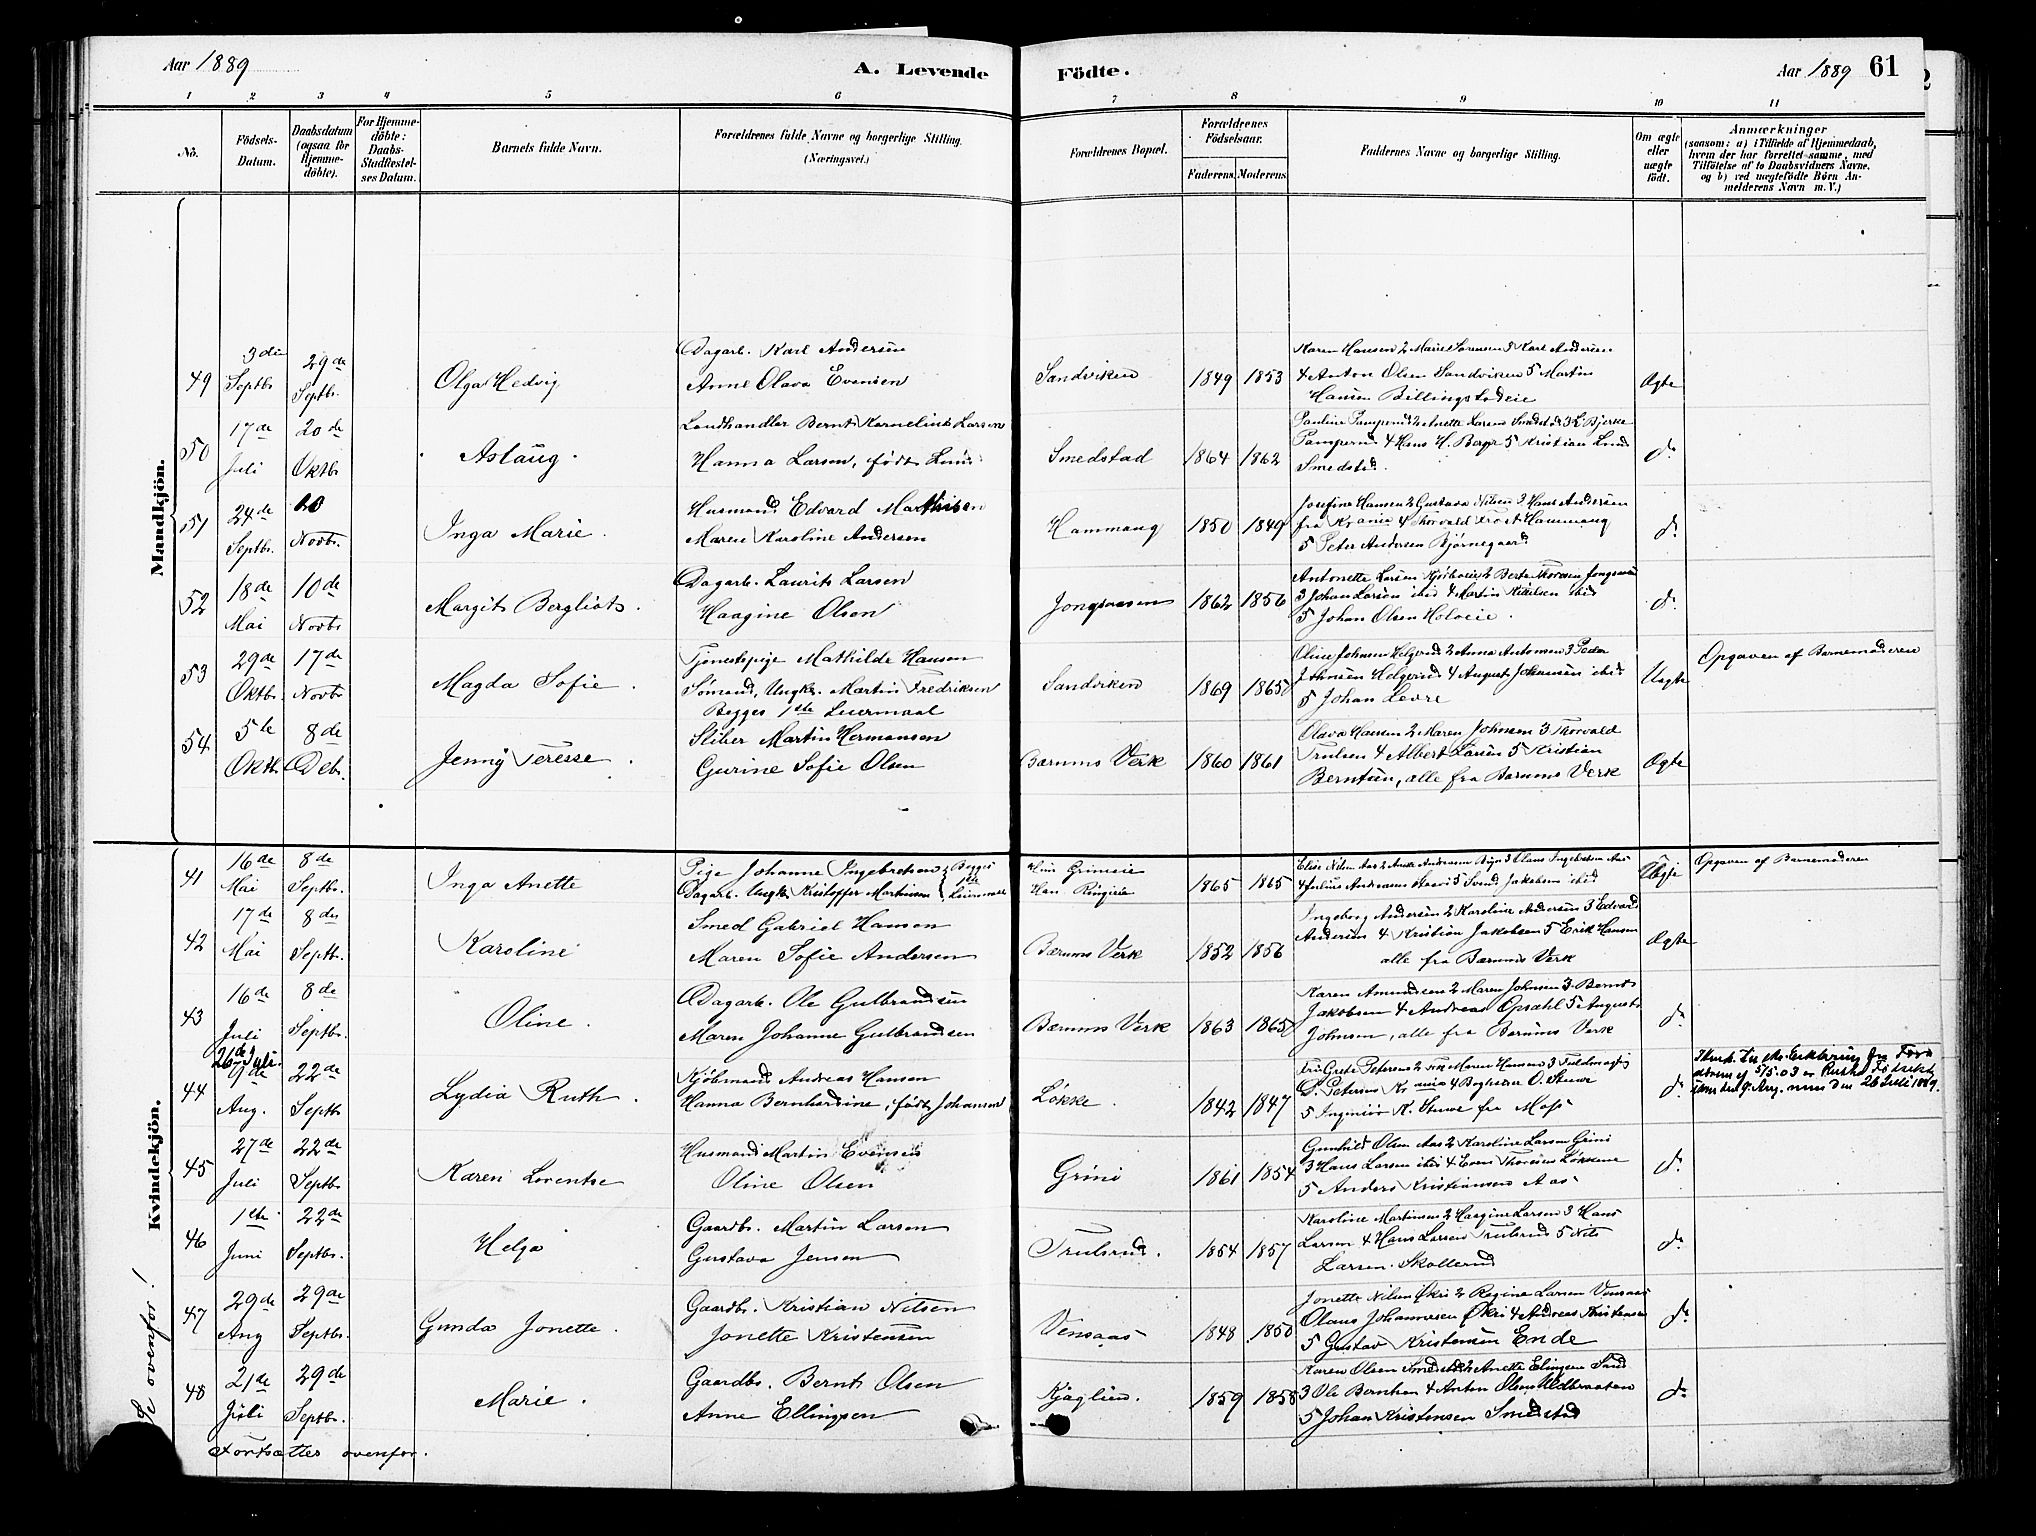 Aar 1889
A. Levende
Födte.
Aar 1889 61
1 2 3 4 5 6 7 8 9 10 11
No.
Födsels-
Datum.
Daabsdatum
(ogsaa for
Hjemme-
döbte).
For Hjemme-
döbte:
Daabs-
Stadfæstel-
ses Datum.
Barnets fulde Navn.
Forældrenes fulde Navne og borgerlige Stilling.
(Næringsvei.)
Forældrenes Bopæl.
Forældrenes
Födselsaar.
Faderens. Moderens.
Faddernes Navne og borgerlige Stilling.
Om ægte
eller
uægte
födt.
Anmærkninger
(saasom: a) i Tilfælde af Hjemmedaab,
hvem der har forrettet samme, med
Tilföielse af to Daabsvidners Navne,
og b) ved uægtefödte Börn An-
melderens Navn m. V.)
Mandkjön.
49
3die
Septbr.
29de
Septbr.
Olga Hedvig
Dagarb. Karl Andersen
Anne Olava Evensen
Sandviken
1849 1853
Karen Hansen 2 Marie Sørensen 3 Karl Andersen
4 Anton Olsen Sandviken 5 Martin
Hansen Billingstadeie
Ægte
50
17de
Juli
20de
Oktbr.
Aslaug.
Landhandler Bernt Kornelius Larsen
Hanna Larsen, født Lund
Smedstad
1864 1862
Pampernd 4 Hans H. Berger 5 Kristian Lund
Smedstad.
do
51
24de
Septbr.
10
Novbr.
Inga Marie.
Husmand Edvard Mathisen
Maren Karoline Andersen
Hammang
1850 1849
Josefine Hansen 2 Gustava Nilsen 3 Hans Andersen
fra Krania 4 Thorvald Frost Hammang
5 Peter Andersen Bjørnegaard
do
52
18de
Mai
10de
Novbr
Margit Bergliot.
Dagarb. Laurits Larsen
Haagine Olsen
Jongsaasen
1862 1856
Antonette Larsen Kjørboeie 2 Berte Thoresen Jongsaasen
3 Johan Larsen ibid 4 Martin Nikelsen ibid
5 Johan Olsen Holoeie.
do
53
29de
Oktbr.
17de
Novbr
Magda Sofie.
Tjenestepige Mathilde Hansen
Sømand, Ungk. Martin Fredriksen
Begges 1ste Leiermaal
Sandviken
1869 1865
Oline Johnsen Helgerud 2 Anna Antonsen 3 Peder
Johnsen Helgerud 4 August Johansen ibid
5 Johan Levre
Uægte
Opgaven af Barnemoderen
54
5te
Oktb.
8de
Debr.
Jenny Terese.
Sliber Martin Hermansen
Gurine Sofie Olsen
Bærums Verk
1860 1861
Olava Hansen 2 Maren Johnsen 3 Thorvald
Trulsen 4 Albert Larsen 5 Kristian
Berntsen, alle fra Bærums Verk
Ægte
Kvindekjön.
41
16de
Mai
8de
Septbr.
Inga Anette
Pige Johanne Ingebretsen } Begges
Dagarb. Ungk. Kristoffer Martinsen } 1ste Leiermaal
Hun Grinieie
Han Ringieie
1865 1865
Elise Nilsen Aas 2 Anne Andersen Bryn 3 Olaus Ingebretsen Aas
Uægte
Opgaven af Barnemoderen
42
17de
Mai
8de
Septbr.
Karoline
Smed Gabriel Hansen
Maren Sofie Andersen
Bærums Verk
1852 1856
Ingeborg Andersen 2 Karoline Andersen 3 Edvard
Andersen 4 Kristian Jakobsen 5 Erik Hansen
alle fra Bærums Verk
Ægte
43
16de
Juli
8de
Septbr.
Oline.
Dagarb. Ole Gulbrandsen
Maren Johanne Gulbrandsen
Bærums Verk
1863 1865
Karen Amundsen 2 Maren Johnsen 3 Bernt
Jakobsen 4 Andreas Opsahl 5 August
Johnsen, alle fra Bærums Verk
do
44
26de Juli.
9de
Aug.
22de
Septb
Lydia Ruth.
Kjøbmand Andreas Hansen
Hanna Bernhardine, født Johansen
Løkke.
1842 1847
5 Ingeniør K. Stuwe fra Moss
do
26 Juli 1889.
45
27de
Juli
22de
Septbr
Karen Lorentse
Husmand Martin Evensen
Oline Olsen
Grini
1861 1854
Gunhild Olsen Aas 2 Karoline Larsen Grini
3 Hans Larsen ibid 4 Even Thoresen Løkkene
5 Anders Kristiansen Aas
do
46
1ste
Juni
22de
Septbr.
Helga
Gaardbr. Martin Larsen
Gustava Jensen
Trulsrud.
1854 1857
Karoline Martinsen 2 Haagine Larsen 3 Hans
Larsen 4 Hans Larsen Trulsrud 5 Nils
Larsen Skollerud
do
47
29de
Aug
29de
Septbr.
Gunda Jonette.
Gaardbr. Kristian Nilsen
Jonette Kristensen
Vensaas
1848 1850
Jonette Nilsen Økri 2 Regine Larsen Vensaas
Olaus Johannesen Økri 4 Andreas Kristensen
5 Gustav Kristensen Ende
do
48
21de
Juli
29de
Septbr.
Marie.
Gaardbr. Bernt Olsen
Anne Ellingsen
Kjaglien.
1859 1858
5 Johan Kristensen Smedstad
do
Fortsættes ovenfor.
ovenfor!